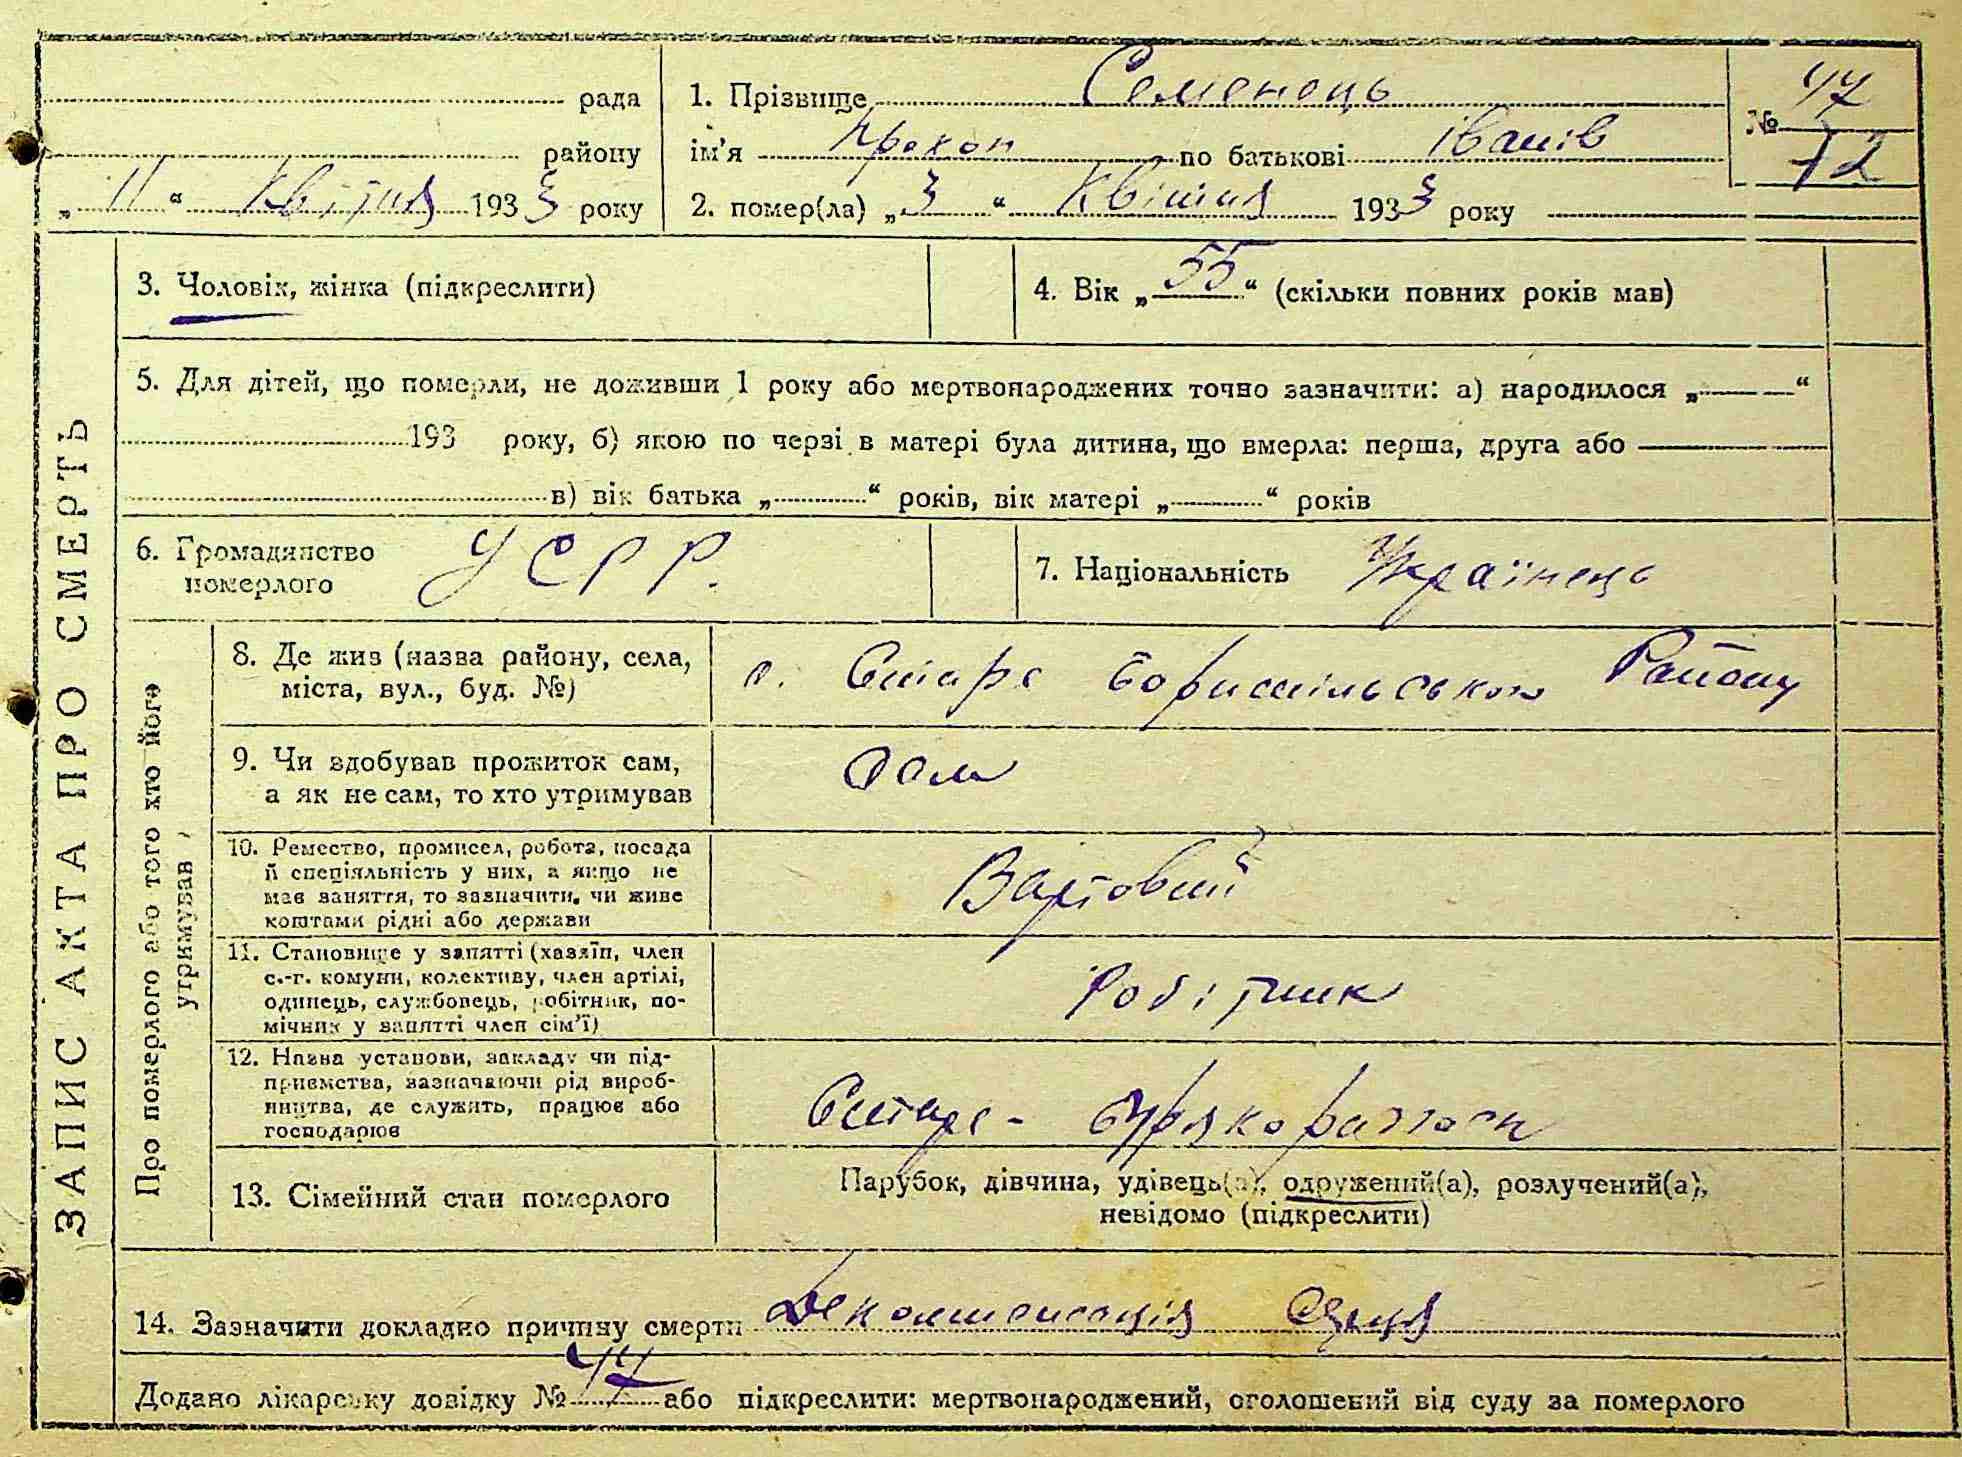 рада
району
„ 11 “ Квітня 1933 року
1. Прізвище Семенець
ім'я Прохон по батькові Іванів
2. помер(ла) „ 3 “ Квітня 1933 року
№ 47
12
ЗАПИС АКТА ПРО СМЕРТЬ
3. Чоловік, жінка (підкреслити)
4. Вік „ 55 “ (скільки повних років мав)
5. Для дітей, що померли, не доживши 1 року або мертвонароджених точно зазначити: а) народилося „ “
193 року, б) якою по черзі в матері була дитина, що вмерла: перша, друга або
в) вік батька „ “ років, вік матері „ “ років
6. Громадянство
померлого
УСРР.
7. Національність Українець
Про померлого або того хто його
утримував
8. Де жив (назва району, села,
міста, вул., буд. №)
с. Старе Бориспільського Району
9. Чи здобував прожиток сам,
а як не сам, то хто утримував
Сам
10. Ремество, промисел, робота, посада
й спеціяльність у них, а якщо не
має заняття, то зазначити, чи живе
коштами рідні або держави
Вартовий
11. Становище у занятті (хазяїн, член
с.-г. комуни, колективу, член артілі,
одинець, службовець, робітник, по-
мічник у занятті член сім'ї)
Робітник
12. Назва установи, закладу чи під-
приємства, зазначаючи рід вироб-
ництва, де служить, працює або
господарює
Старе- Бурякорадгосп
13. Сімейний стан померлого
Парубок, дівчина, удівець(а), одружений(а), розлучений(а),
невідомо (підкреслити)
14. Зазначити докладно причину смерти Декомпенсація Серця
Додано лікарську довідку № 47 або підкреслити: мертвонароджений, оголошений від суду за померлого